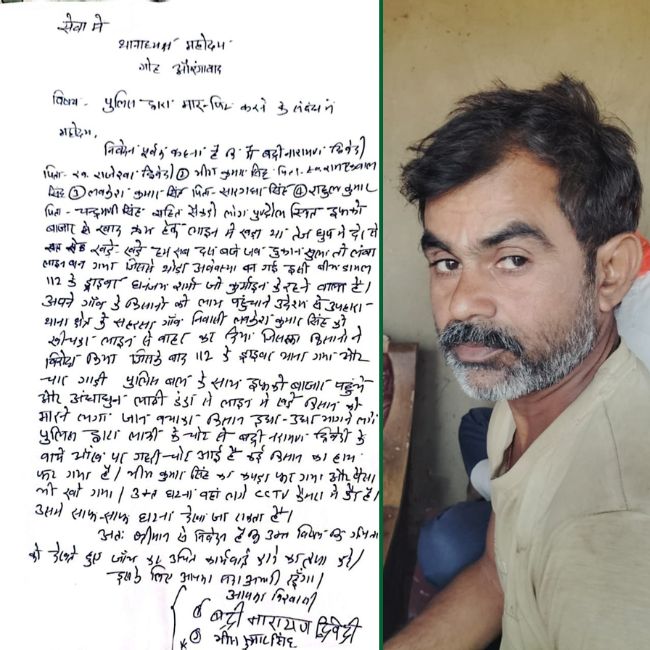 सेवा में
थानाध्यक्ष महोदय
गोह औरंगाबाद
विषय - पुलिस द्वारा मार-पिट करने के संबंध में
महोदय,
निवेदन पूर्वक कहना है कि मैं बद्रीनारायण द्विवेदी
पिता - स्व. राजेश्वर द्विवेदी ② भीम कुमार सिंह पिता-
सिंह ③ लवकुश कुमार सिंह पिता- ④ राहुल कुमार
पिता - सिंह सहित सैकड़ो लोग स्थित इफको
बाजार से खाद लेने हेतु लाइन में खड़ा था। तेज धुप में देर से
खड़े- खड़े हम सब दस बजे जब दुकान खुला तो लंबा
लाइन बन गया जिससे थोड़ा अवेवस्था बन गई इसी बीच डायल
112 के ड्राइवर धनंजय शर्मा जो के रहने वाला है।
अपने गाँव के किसानों को लाभ पहुंचाने उदेश्य से उपहारा-
थाना क्षेत्र के गाँव निवासी लवकुश कुमार सिंह को
खींचकर लाइन से बाहर कर दिया जिसका किसानों ने
विरोध किया जिसके बाद 112 के ड्राइवर माना गया और
चार गाड़ी पुलिस बल के साथ इफको बाजार पहुंचे
और अंधाधुन लाठी डंडा से लाइन में खड़े किसान को
मारने लगा जान बचाकर किसान इधर-उधर भागने लगे
पुलिस द्वारा लाठी के चोट से बद्री नारायण द्विवेदी के
बायें आँख पर गहरी-चोट आई है कई किसान का हाथ
फट गया है। भीम कुमार सिंह का कपड़ा फट गया और पैसा
भी खो गया। उक्त घटना वहां लगे CCTV कैमरा में कैद है।
उसमें साफ-साफ घटना देखा जा सकता है।
अतः श्रीमान से निवेदन है कि उक्त विषय कि गंभीरता
को देखते हुए जाँच कर उचित कार्रवाई करने का कृपा करें।
इसके लिए आपका सदा आभारी रहूँगा।
आपका विश्वासी
① बद्री नारायण द्विवेदी
② भीम कुमार सिंह